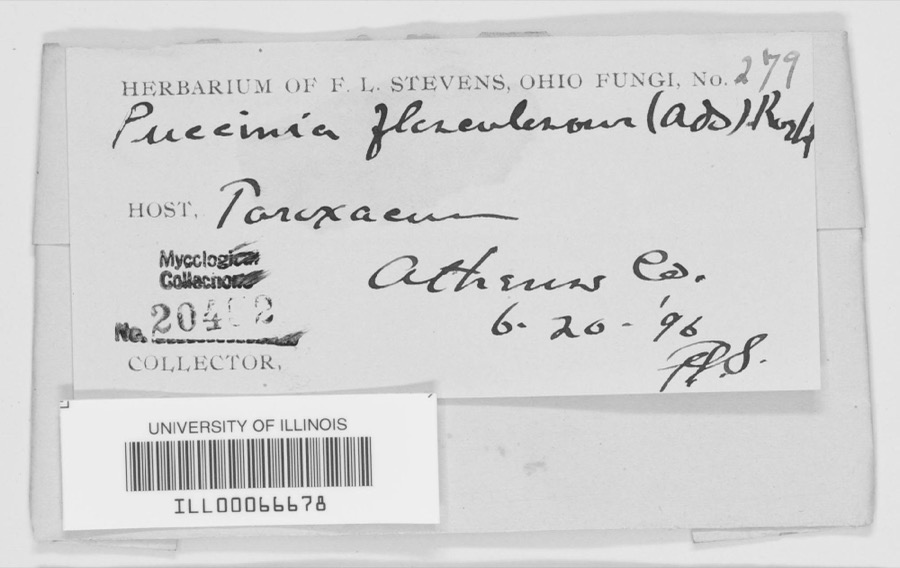 HERBARIUM OF F. L. STEVENS, OHIO FUNGI, No. 279
Puccinia flosculosorum (A&S) Roehl
HOST, Taraxacum
Athens Co.
6-20-'96
F.L.S.
Mycological
Collections
No.
COLLECTOR,
UNIVERSITY OF ILLINOIS
ILL00066678